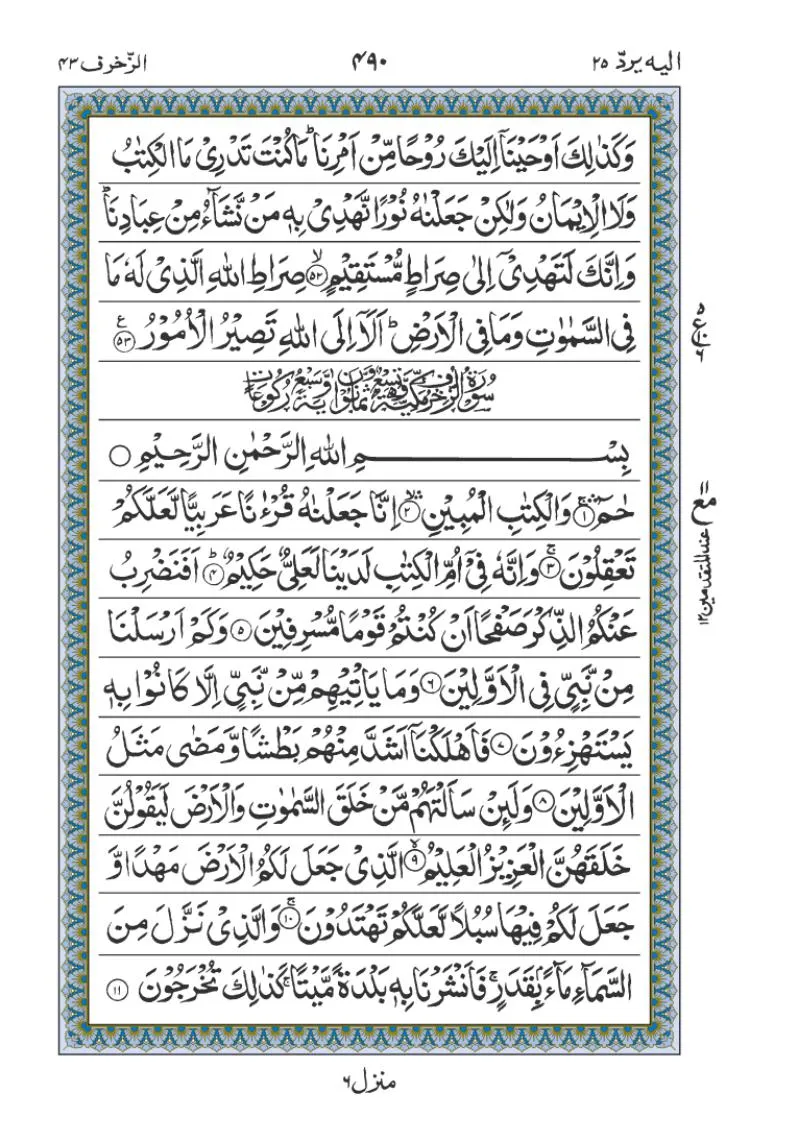 الیه یردّ ۲۵
۴۹۰
الزّخرف ۴۳
وَكَذٰلِكَ اَوْحَيْنَاۤ اِلَيْكَ رُوْحًا مِّنْ اَمْرِنَا ؕ مَا كُنْتَ تَدْرِىْ مَا الْكِتٰبُ
وَلَا الْاِيْمَانُ وَلٰكِنْ جَعَلْنٰهُ نُوْرًا نَّهْدِىْ بِهٖ مَنْ نَّشَآءُ مِنْ عِبَادِنَا ؕ
وَاِنَّكَ لَتَهْدِىْۤ اِلٰى صِرَاطٍ مُّسْتَقِيْمٍ ۙ‏﴿۵۲﴾ صِرَاطِ اللّٰهِ الَّذِىْ لَهٗ مَا
فِى السَّمٰوٰتِ وَمَا فِى الْاَرْضِ ؕ اَلَاۤ اِلَى اللّٰهِ تَصِيْرُ الْاُمُوْرُ ﴿۵۳﴾ ع
۵ ع ۶
سُوْرَةُ الزُّخْرُفِ مَكِّيَّةٌ وَّهِىَ تِسْعٌ وَّثَمَانُوْنَ اٰيَةً وَّسَبْعُ رُكُوْعَاتٍ
بِسْمِ اللّٰهِ الرَّحْمٰنِ الرَّحِيْمِ ○
حٰمٓ ۛۚ﴿۱﴾ وَالْكِتٰبِ الْمُبِيْنِ ۛۙ‏﴿۲﴾ اِنَّا جَعَلْنٰهُ قُرْءٰنًا عَرَبِيًّا لَّعَلَّكُمْ
مع ۱۱ عند المتقدمین ۱۲
تَعْقِلُوْنَ ۚ‏﴿۳﴾ وَاِنَّهٗ فِىْۤ اُمِّ الْكِتٰبِ لَدَيْنَا لَعَلِىٌّ حَكِيْمٌ ؕ‏﴿۴﴾ اَفَنَضْرِبُ
عَنْكُمُ الذِّكْرَ صَفْحًا اَنْ كُنْتُمْ قَوْمًا مُّسْرِفِيْنَ ﴿۵﴾ وَكَمْ اَرْسَلْنَا
مِنْ نَّبِىٍّ فِى الْاَوَّلِيْنَ ﴿۶﴾ وَمَا يَاْتِيْهِمْ مِّنْ نَّبِىٍّ اِلَّا كَانُوْا بِهٖ
يَسْتَهْزِءُوْنَ ﴿۷﴾ فَاَهْلَكْنَاۤ اَشَدَّ مِنْهُمْ بَطْشًا وَّمَضٰى مَثَلُ
الْاَوَّلِيْنَ ﴿۸﴾ وَلَئِنْ سَاَلْتَهُمْ مَّنْ خَلَقَ السَّمٰوٰتِ وَالْاَرْضَ لَيَقُوْلُنَّ
خَلَقَهُنَّ الْعَزِيْزُ الْعَلِيْمُ ۙ‏﴿۹﴾ الَّذِىْ جَعَلَ لَكُمُ الْاَرْضَ مَهْدًا وَّ
جَعَلَ لَكُمْ فِيْهَا سُبُلًا لَّعَلَّكُمْ تَهْتَدُوْنَ ۚ‏﴿۱۰﴾ وَالَّذِىْ نَزَّلَ مِنَ
السَّمَآءِ مَآءًۢ بِقَدَرٍ ۚ فَاَنْشَرْنَا بِهٖ بَلْدَةً مَّيْتًا ۚ كَذٰلِكَ تُخْرَجُوْنَ ﴿۱۱﴾
منزل ۶